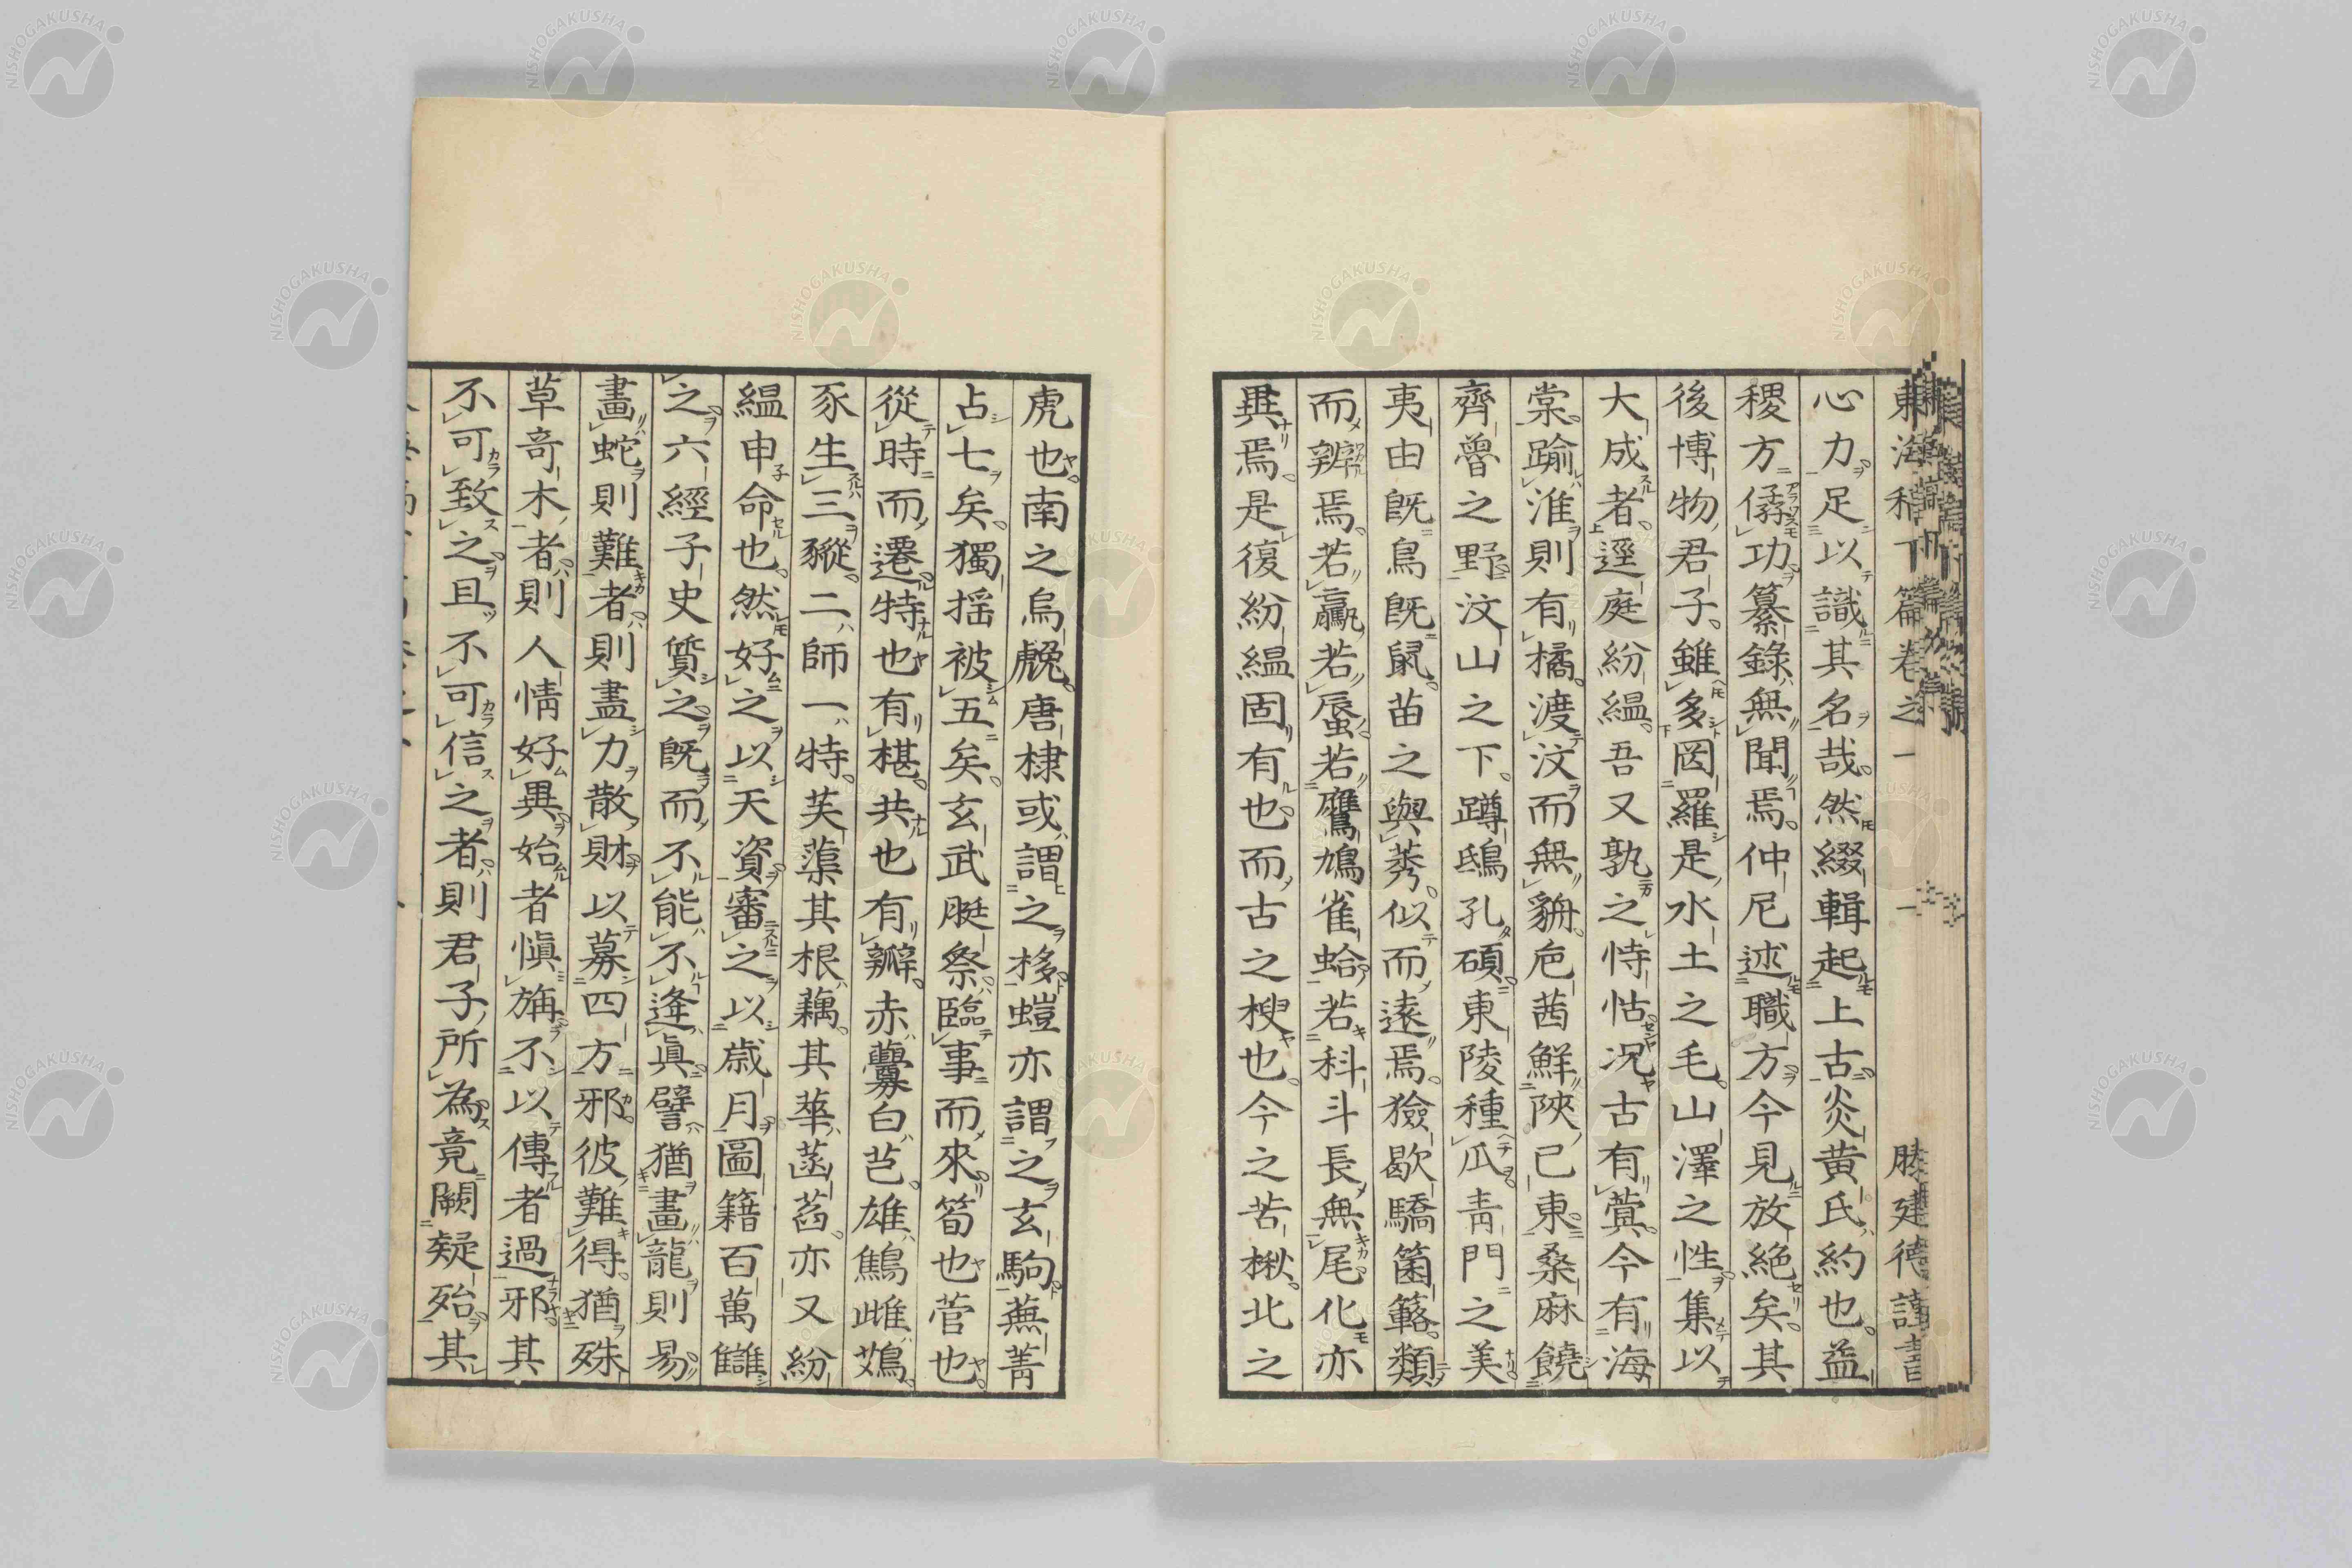 心力足以識其名哉然綴輯起上古炎黄氏約也益
稷方偋功纂錄無聞焉仲尼述職方今見放絶矣其
後博物君子雖多罔羅是水土之毛山澤之性集以
大成者逕庭紛緼吾又孰之恃怙況古有蓂今有海
棠踰淮則有橘渡汶而無貈巵茜鮮陝已東桑麻饒
齊魯之野汶山之下蹲鴟孔碩東陵種瓜青門之美
夷由既鳥既鼠苗之與莠似而遠焉獫歇驕箘簵類
而辨焉若蠃若蜃若鷹鳩雀蛤若科斗長無尾化亦
異焉是復紛緼固有也而古之梗也今之苦楸北之
虎也南之烏䖘唐棣或謂之栘螘亦謂之玄駒蕪菁
占七矣獨揺被五矣玄武脡祭臨事而來筍也菅也
從時而遷特也有椹共也有瓣赤虋白芑雄鷦雌鴳
豕生三豵二師一特芙蕖其根藕其華菡萏亦又紛
緼申命也然好之以天資審之以歳月圖籍百萬讎
之六經子史質之既而不能不逢眞譬猶畫龍則易
畫蛇則難者則盡力散財以募四方邪彼難得猶殊
草竒木者則人情好異始者愼旃不以傳者過邪其
不可致之且不可信之者則君子所為竟闕疑殆其
東海稿下篇卷之一 滕建德謹書